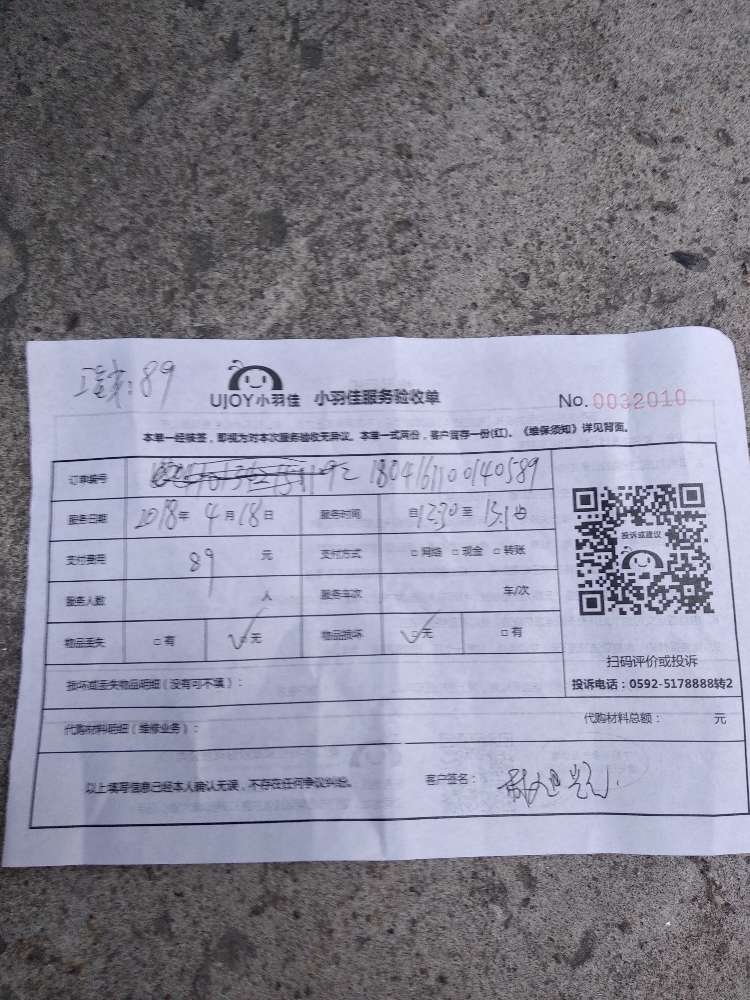 :89
UJOY小羽佳 小羽佳服务验收单 No.0032010
本单一经核签，即视为对本次服务验收无异议。本单一式两份，客户留存一份(红)。《维保须知》详见背面。
订单编号 180416110014058​9
服务日期 2018年4月18日 服务时间 自12:30至13:10
投诉或建议
支付费用 89 元 支付方式 □网络 □现金 □转账
服务人数 人 服务车次 车/次
物品丢失 □有 ✓□无 物品损坏 ✓□无 □有
扫码评价或投诉
损坏或丢失物品明细（没有可不填）：
投诉电话：0592-5178888转2
代购材料明细（维修业务）： 代购材料总额： 元
以上填写信息已经本人确认无误，不存在任何争议纠纷。 客户签名：